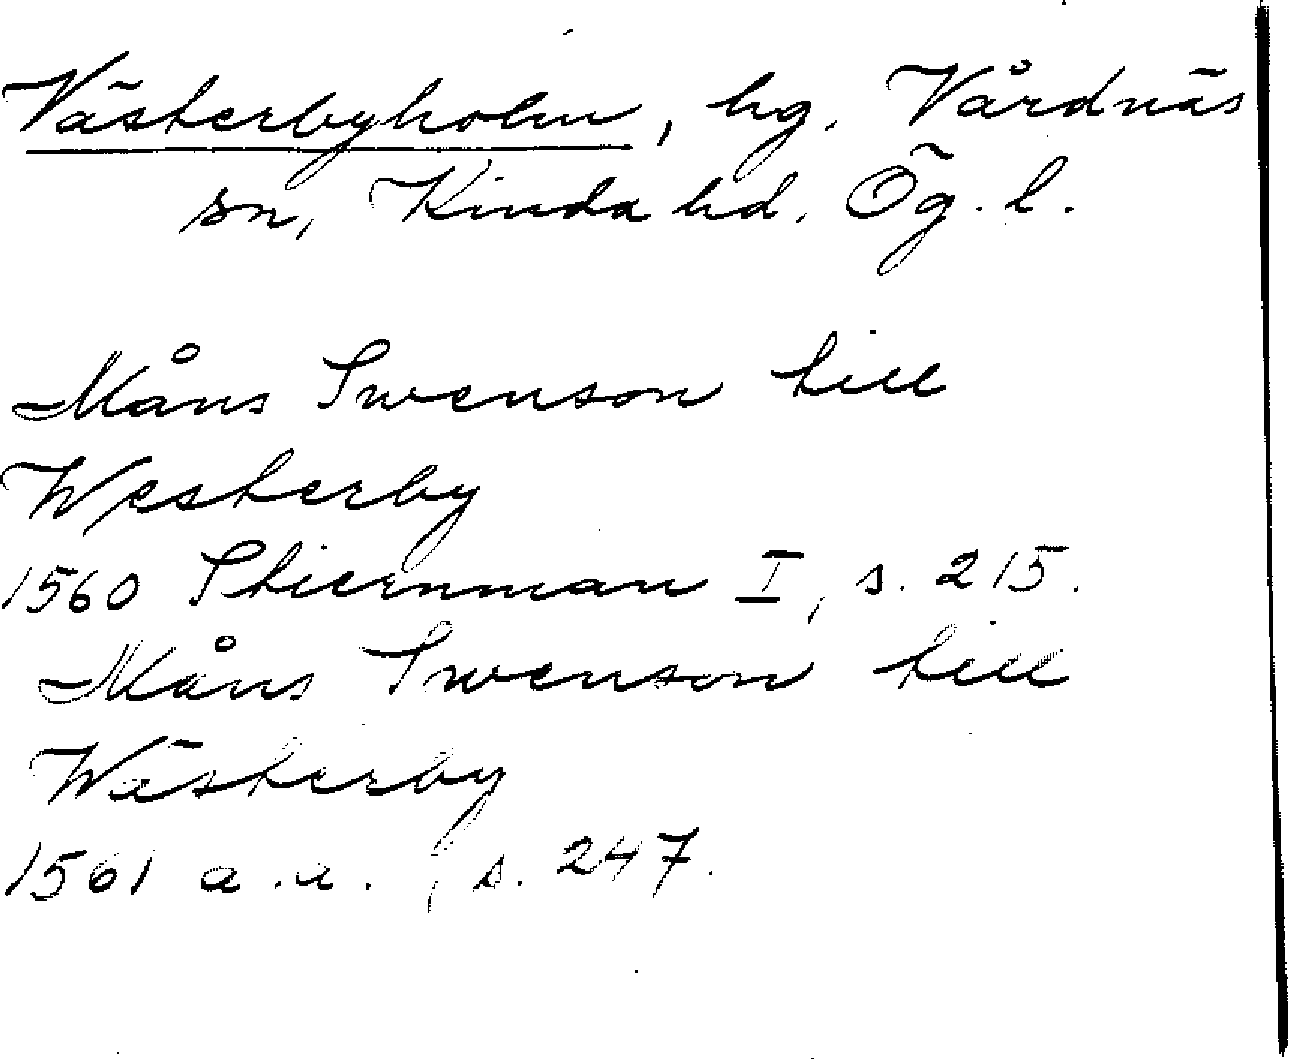 Västerbyholm, hg. Vårdnäs
sn, Kinda hd. Ög. l.
Måns Swenson till
Westerby
1560 Stiernman I, s. 215.
Måns Swenson till
Wästerby
1561 a.a., s. 247.